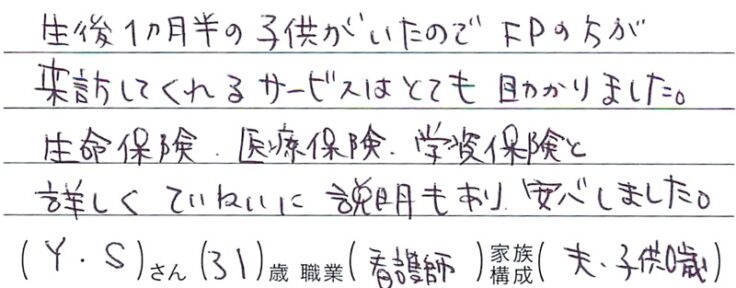 生後1カ月半の子供がいたのでFPの方が
来訪してくれるサービスはとても助かりました。
生命保険、医療保険、学資保険と
詳しくていねいに説明もあり、安心しました。
(Y・S)さん(31)歳 職業(看護師)家族構成(夫、子供0歳)